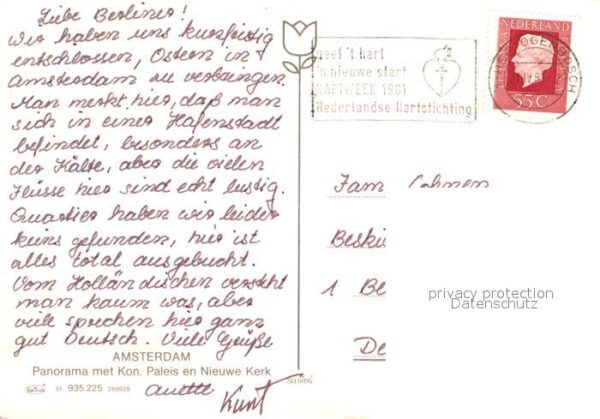 Liebe Berliner!
Wir haben uns kurzfristig
entschlossen, Ostern in
Amsterdam zu verbringen.
Man merkt hier, daß man
sich in einer Hafenstadt
befindet, besonders an
der Kälte, aber die vielen
Flüsse hier sind echt lustig.
Quartier haben wir leider
keins gefunden, hier ist
alles total ausgebucht.
Vom Holländischen versteht
man kaum was, aber
viele sprechen hier ganz
gut Deutsch. Viele Grüße
Anette Kurt
AMSTERDAM
Panorama met Kon. Paleis en Nieuwe Kerk
St. 935.225
geef 't hart
'n nieuwe start
HARTWEEK 1981
Nederlandse Hartstichting
NEDERLAND
55c
Fam
Beski
1 Be
De
privacy protection
Datenschutz